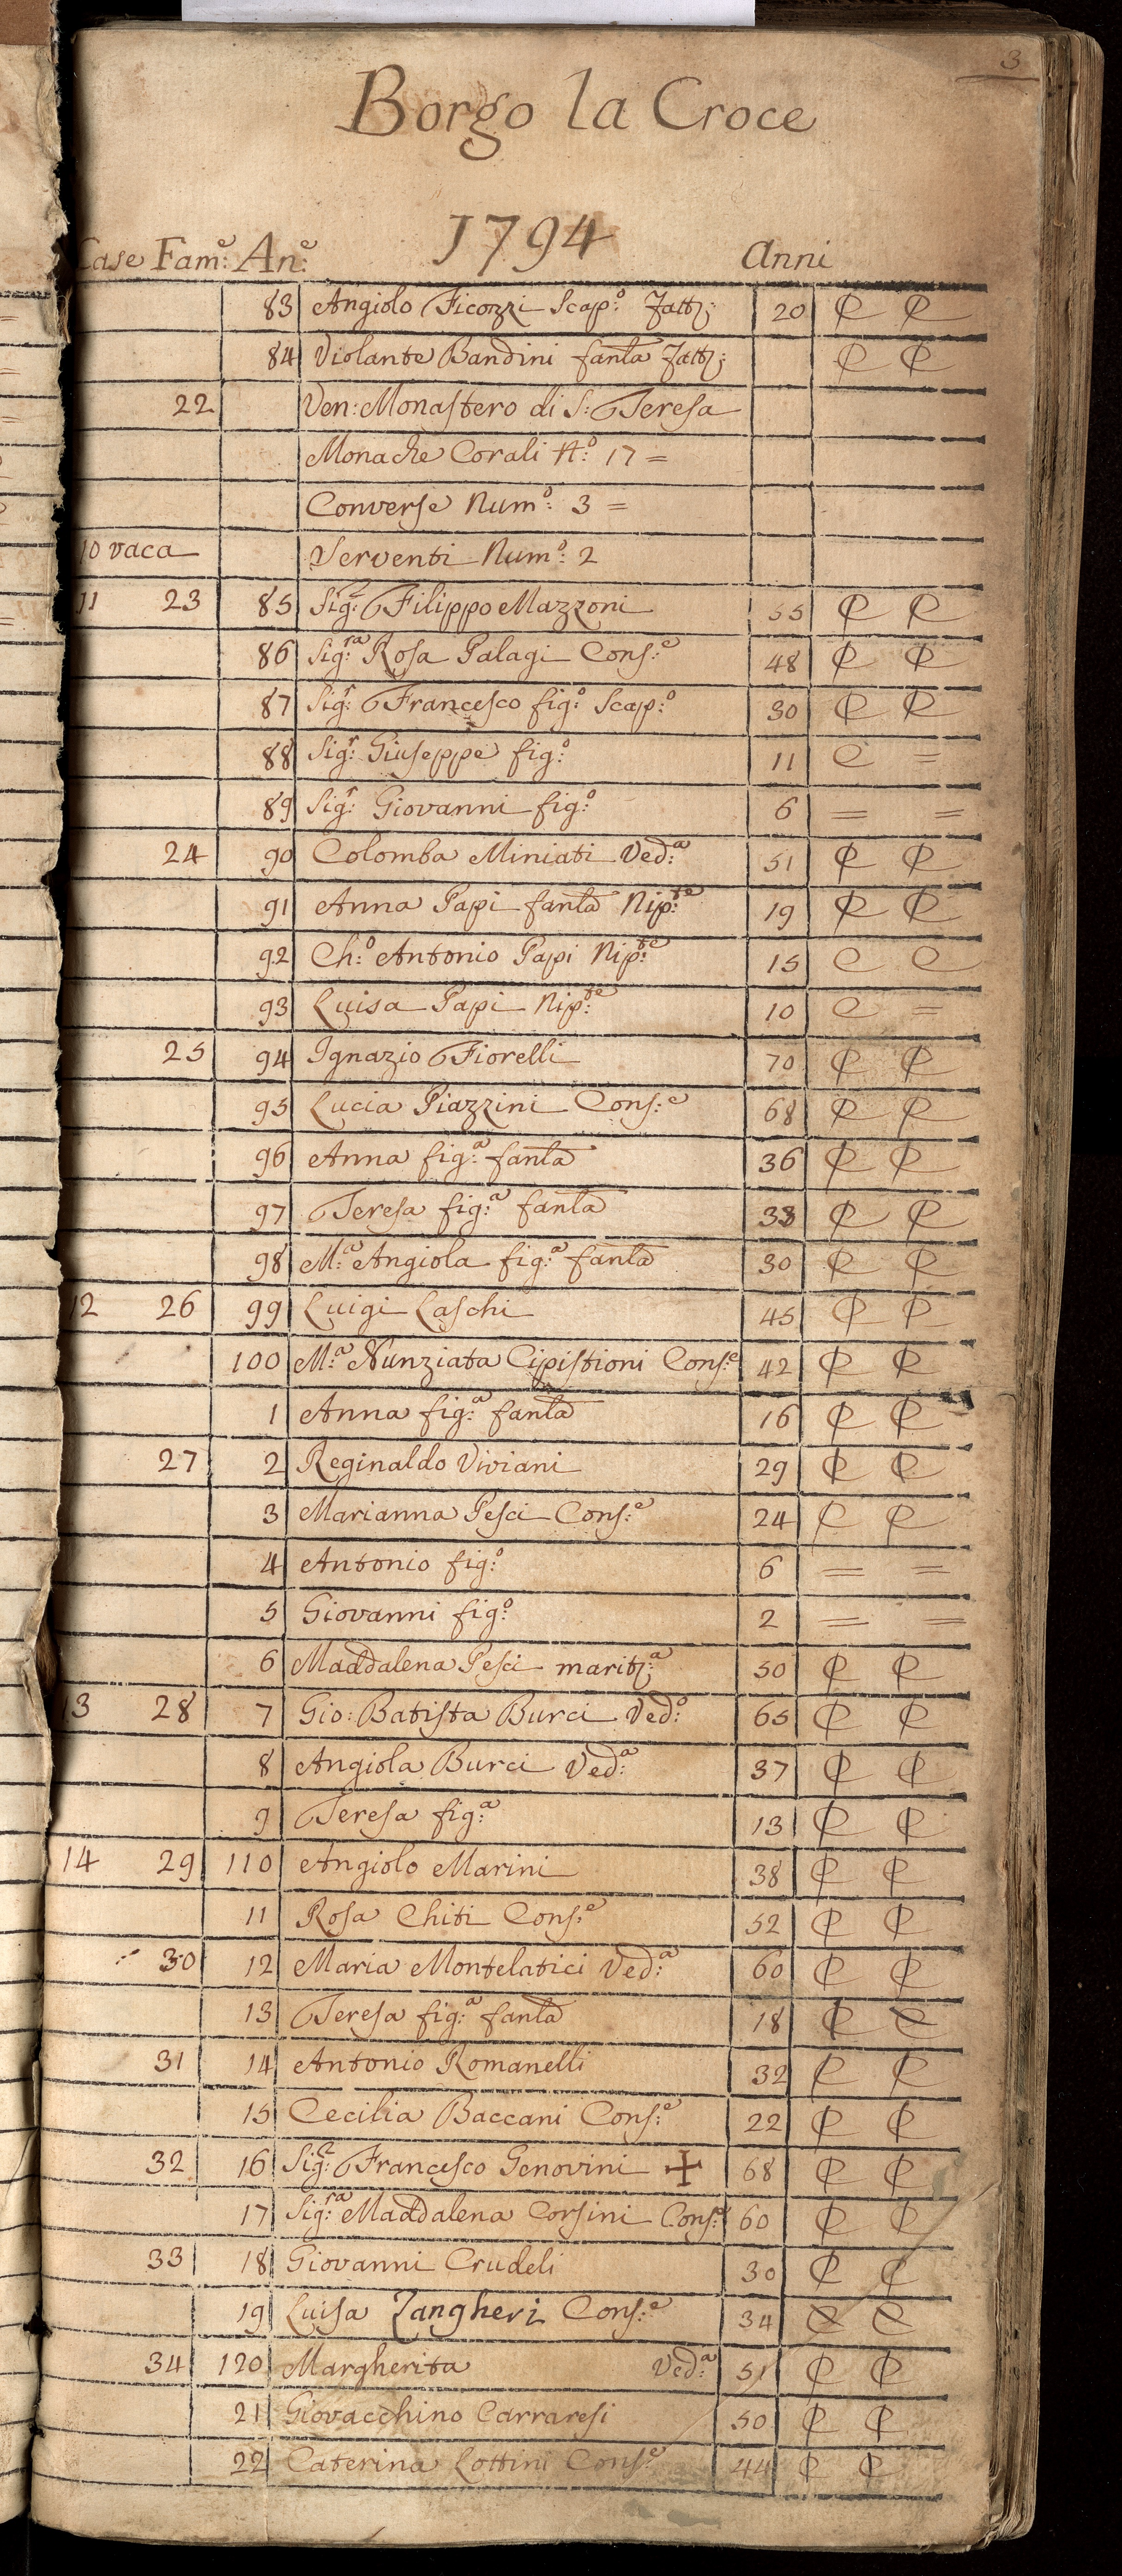 3
Borgo la Croce
1794
Case Fam:e An:e Anni
83 Angiolo Ficozzi Scap:o 20 C C
84 Violante Bandini fanla C C
22 Ven: Monastero di S: Teresa
Monache Corali N:o 17 =
Converse Num:o 3 =
10 vaca Serventi Num:o 2
11 23 85 Sig:r Filippo Mazzoni 55 C C
86 Sig:ra Rosa Palagi Cons:e 48 C C
87 Sig:r Francesco fig:o Scap:o 30 C C
88 Sig:r Giuseppe fig:o 11 C =
89 Sig:r Giovanni fig:o 6 = =
24 90 Colomba Miniati Ved:a 51 C C
91 Anna Papi fanla Nip:te 19 C C
92 Ch:o Antonio Papi Nip:te 15 C C
93 Luisa Papi Nip:te 10 C =
25 94 Ignazio Fiorelli 70 C C
95 Lucia Piazzini Cons:e 68 C C
96 Anna fig:a fanla 36 C C
97 Teresa fig:a fanla 33 C C
98 M:a Angiola fig:a fanla 30 C C
12 26 99 Luigi Laschi 45 C C
100 M:a Nunziata Cipistioni Cons:e 42 C C
1 Anna fig:a fanla 16 C C
27 2 Reginaldo Viviani 29 C C
3 Marianna Pesci Cons:e 24 C C
4 Antonio fig:o 6 = =
5 Giovanni fig:o 2 = =
6 Maddalena Pesci marit:a 50 C C
13 28 7 Gio: Batista Burci Ved:o 65 C C
8 Angiola Burci Ved:a 37 C C
9 Teresa fig:a 13 C C
14 29 110 Angiolo Marini 38 C C
11 Rosa Chiti Cons:e 52 C C
30 12 Maria Montelatici Ved:a 60 C C
13 Teresa fig:a fanla 18 C C
31 14 Antonio Romanelli 32 C C
15 Cecilia Baccani Cons:e 22 C C
32 16 Sig:r Francesco Genovini + 68 C C
17 Sig:ra Maddalena Corsini Cons:e 60 C C
33 18 Giovanni Crudeli 30 C C
19 Luisa Zangheri Cons:e 34 C C
34 120 Margherita Ved:a 51 C C
21 Giovacchino Carraresi 50 C C
22 Caterina Lottini Cons:e 44 C C